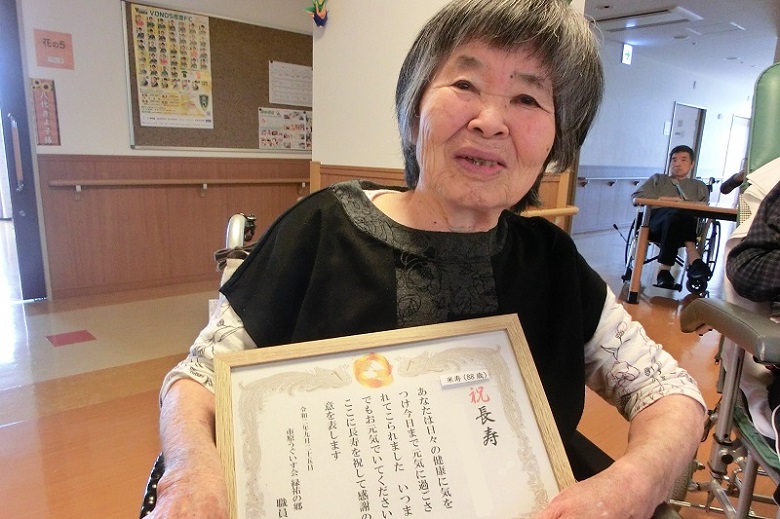 VONDS市原FC
花め5
米寿(88歳)
祝 長寿
あなたは日々の健康に気を
つけ今日まで元気に過ごさ
れてこられました いつま
でもお元気でいてください
ここに長寿を祝して感謝の
意を表します
令和二年九月二十五日
市原うぐいす会 緑祐の郷
職員